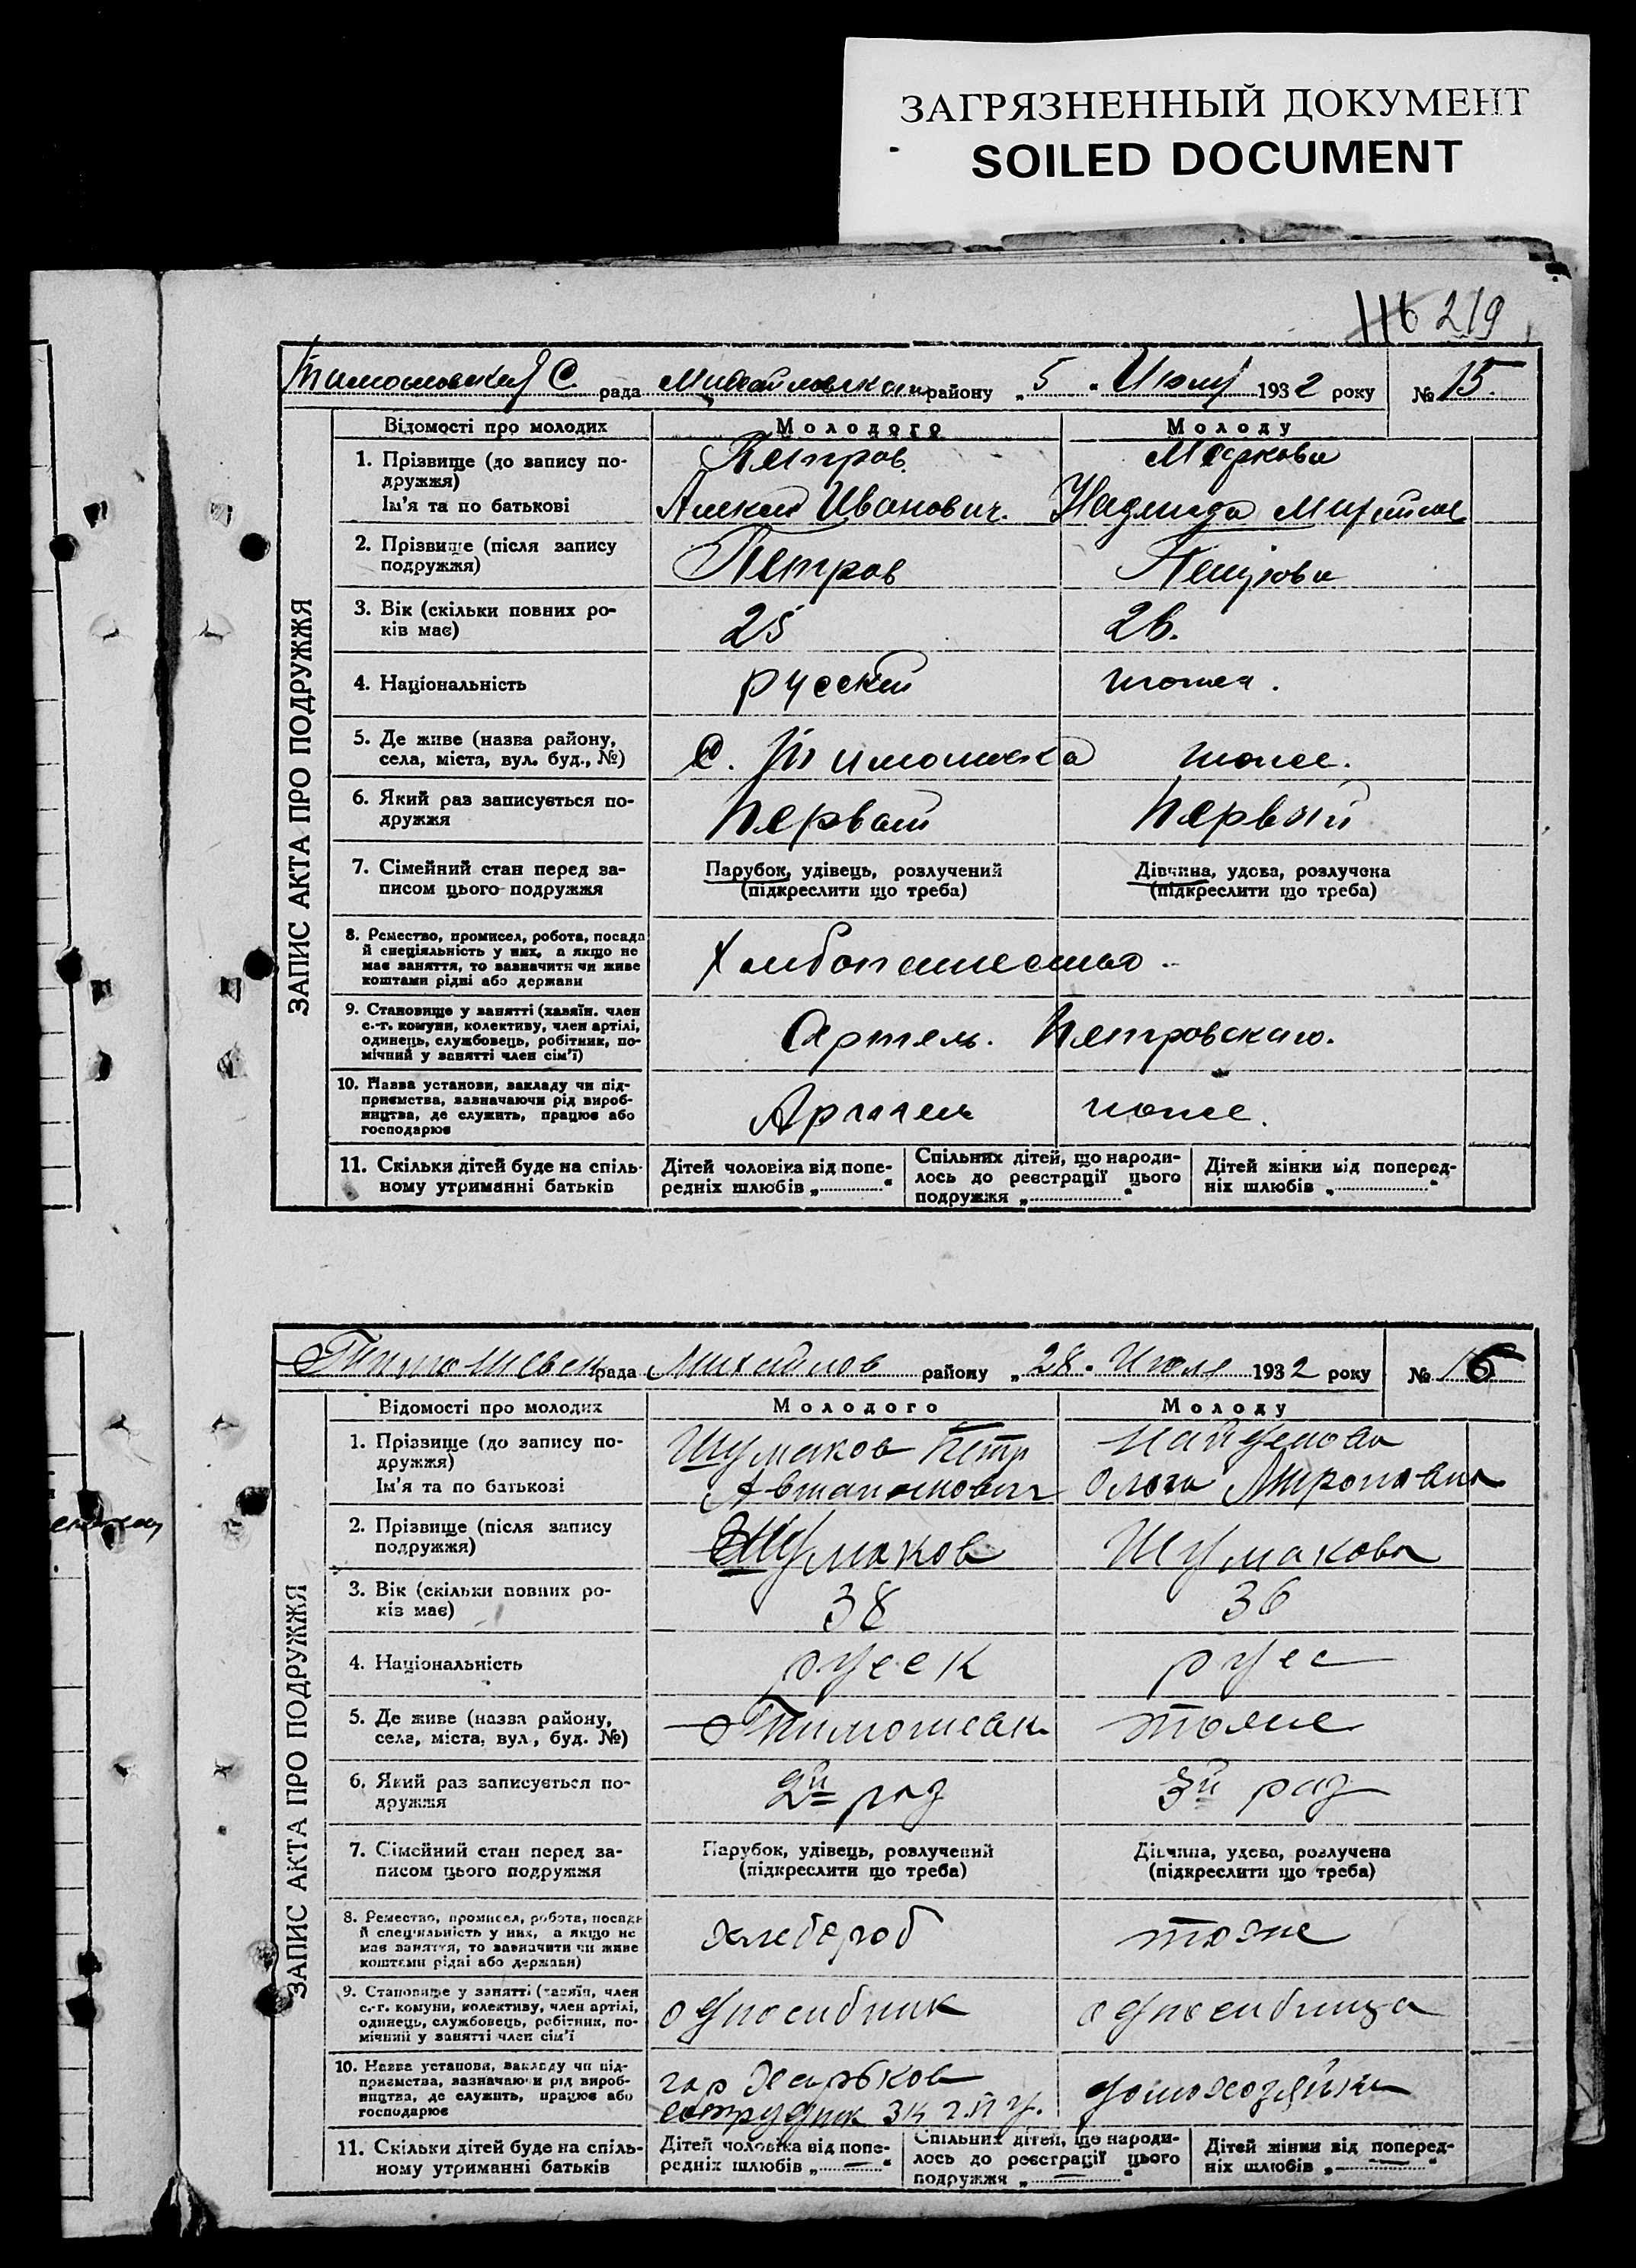 ЗАГРЯЗНЕННЫЙ ДОКУМЕНТ
SOILED DOCUMENT
116 219
С. рада района „5“ 1932 року № 15.
ЗАПИС АКТА ПРО ПОДРУЖЖЯ
Відомості про молодих Молодого Молоду
1. Прізвище (до запису по-
дружжя)
Петров Маркова
Ім'я та по батькові
Иванович. Надежда
2. Прізвище (після запису
подружжя)
Петров Петрова
3. Вік (скільки повних ро-
ків має)
25 26.
4. Національність русский тоже.
5. Де живе (назва району,
села, міста, вул. буд., №)
С. Тимошевка тоже.
6. Який раз записується по-
дружжя
Первый Первый
7. Сімейний стан перед за-
писом цього подружжя
Парубок, удівець, розлучений
(підкреслити що треба)
Дівчина, удова, розлучена
(підкреслити що треба)
8. Ремество, промисел, робота, посада
й спеціяльність у них, а якщо не
має заняття, то зазначити чи живе
коштами рідні або держави
9. Становище у занятті (хазяїн, член
с.-г. комуни, колективу, член артілі,
одинець, службовець, робітник, по-
мічний у занятті член сім'ї)
Артель. Петровского.
10. Назва установи, закладу чи під-
приємства, зазначаючи рід вироб-
ництва, де служить, працює або
господарює
Артель тоже.
11. Скільки дітей буде на спіль-
ному утриманні батьків
Дітей чоловіка від попе-
редніх шлюбів „ “
Спільних дітей, що народи-
лось до реєстрації цього
подружжя „ “
Дітей жінки від поперед-
ніх шлюбів „ “
рада Михайлов району „28“ Июля 1932 року № 16
ЗАПИС АКТА ПРО ПОДРУЖЖЯ
Відомості про молодих Молодого Молоду
1. Прізвище (до запису по-
дружжя)
Шумаков Петр Найденова
Ім'я та по батькові
Автапонович Ольга Мироновна
2. Прізвище (після запису
подружжя)
Шумаков Шумакова
3. Вік (скільки повних ро-
ків має)
38 36
4. Національність русск русс
5. Де живе (назва району,
села, міста, вул., буд. №)
тоже
6. Який раз записується по-
дружжя
2й раз 3й раз
7. Сімейний стан перед за-
писом цього подружжя
Парубок, удівець, розлучений
(підкреслити що треба)
Дівчина, удова, розлучена
(підкреслити що треба)
8. Ремество, промисел, робота, посада
й спеціяльність у них, а якщо не
має заняття, то зазначити чи живе
коштами рідні або держави)
хлебороб тоже
9. Становище у занятті (хазяїн, член
с.-г. комуни, колективу, член артілі,
одинець, службовець, робітник, по-
мічний у занятті член сім'ї
односибник односибница
10. Назва установи, закладу чи під-
приємства, зазначаючи рід вироб-
ництва, де служить, працює або
господарює
гор Харьков
сотрудник домохозяйка
11. Скільки дітей буде на спіль-
ному утриманні батьків
Дітей чоловіка від попе-
редніх шлюбів „—“
Спільних дітей, що народи-
лось до реєстрації цього
подружжя „—“
Дітей жінки від поперед-
ніх шлюбів „—“